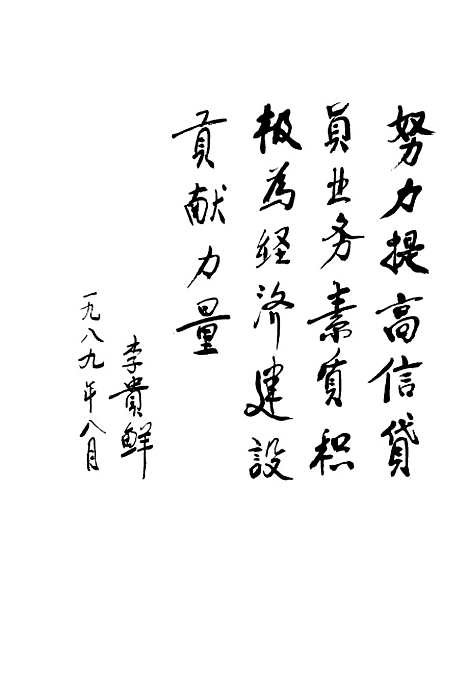 努力提高信貸
員业务素质积
极為経济建設
貢献力量
李貴鲜
一九八九年八月